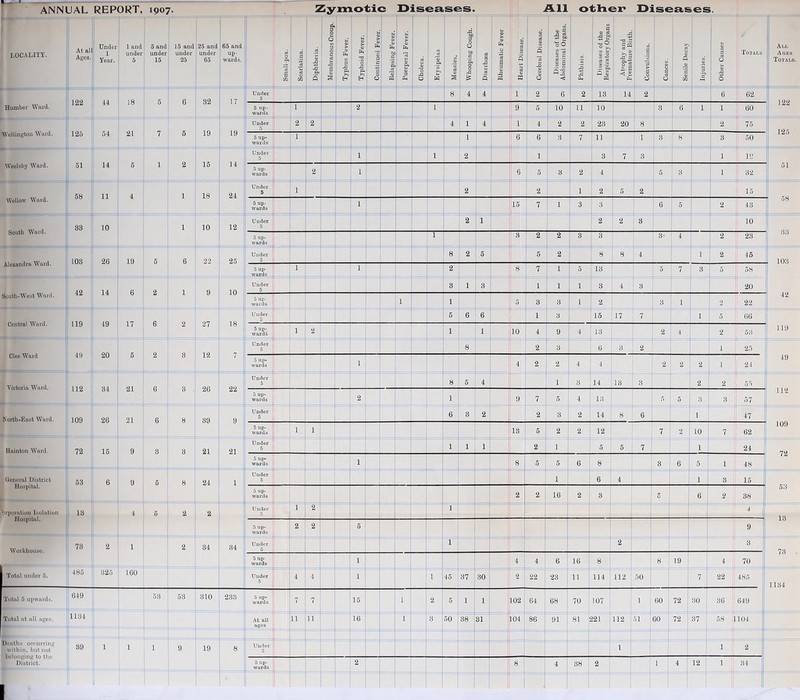 ANNUAL REPORT, 1907. Zymotic Diseases. All other Diseases.
LOCALITY. At all Ages. Under 1 Year. 1 and under 5 5 and under 15 15 and under 25 25 and under 65 65 and up- wards. Small-pox. Scarlatina. Diphtheria. Membranous Croup. Typhus Fever. Typhoid Fever. Continued Fever. Relapsing Fever. Puerperal Fever. Cholera. Erysipelas Measles. Whooping Cough. Diarrhœa Rheumatic Fever Heart Disease. Cerebral Disease. Diseases of the Abdominal Organs. Phthisis. Diseases of the Respiratory Organs Atrophy and Premature Birth. Convulsions. Cancer. Senile Decay Injuries. Other Causes Totals All Ages Totals.
Humber Ward. 122 44 18 5 6 32 17 Under 5 8 4 4 1 2 6 2 13 14 2 6 62 122
5 up- wards 1 2 1 9 5 10 11 10 3 6 1 1 60
Wellington Ward. 125 54 21 7 5 19 19 Under 5 2 2 4 1 4 1 4 2 2 23 20 8 2 75 125
5 up- wards 1 1 6 6 3 7 11 1 3 8 3 50
Weelsby Ward. 51 14 5 1 2 15 14 Under 5 1 1 2 1 3 7 3 1 12 51
5 up- wards 2 1 6 5 3 2 4 5 3 1 32
Wellow Ward. 58 11 4 1 18 24 Under 5 1 2 2 1 2 5 2 15 58
5 up- wards 1 15 7 1 3 3 6 5 2 43
South Ward. 33 10 1 10 12 Under 5 2 1 2 2 3 10 33
5 up- wards 1 3 2 2 3 3 3 4 2 23
Alexandra Ward. 103 26 19 5 6 22 25 Under 5 8 2 5 5 2 8 8 4 1 2 45 103
5 up- wards 1 1 2 8 7 1 5 13 5 7 3 5 58
South-West Ward. 42 14 6 2 1 9 10 Under 5 3 1 3 1 1 1 3 4 3 20 42
5 up- wards 1 1 5 3 3 1 2 3 1 2 22
Central Ward. 119 49 17 6 2 27 18 Under 5 5 6 6 1 3 15 17 7 1 5 66 119
5 up- wards 1 2 1 1 10 4 9 4 13 2 4 2 53
Clee Ward 49 20 5 2 3 12 7 Under 5 8 2 3 6 3 2 1 25 49
5 up- wards 1 4 2 2 4 4 2 2 2 1 24
Victoria Ward. 112 34 21 6 3 26 22 Under 5 8 5 4 1 3 14 13 3 2 2 55 112
5 up- wards 2 1 9 7 5 4 13 5 5 3 3 57
North-East Ward. 109 26 21 6 8 39 9 Under 5 6 3 2 2 3 2 14 8 6 1 47 109
5 up- wards 1 1 13 5 2 2 12 7 2 10 7 62
Hainton Ward. 72 15 9 3 3 21 21 Under 5 1 1 1 2 1 5 5 7 1 24 72
5 up- wards 1 8 5 5 6 8 3 6 5 1 48
General District Hospital. 53 6 9 5 8 24 1 Under 5 1 6 4 1 3 15 53
5 up- wards 2 2 16 2 3 5 6 2 38
Corporation Isolation Hospital. 13 4 5 2 2 Under 5 1 2 1 4 13
5 up- wards 2 2 5 9
Workhouse. 73 2 1 2 34 34 Under 5 1 2 3 73
5 up- wards 1 4 4 6 16 8 8 19 4 70
Total under 5. 485 325 160 Under 5 4 4 1 1 45 37 30 2 22 23 11 114 112 50 7 22 485 1134
Total 5 upwards. 649 53 53 310 233 5 up- wards 7 7 15 1 2 5 1 1 102 64 68 70 107 1 60 72 30 36 649
Total at all ages. 1134 At all ages 11 11 16 1 3 50 38 31 104 86 91 81 221 112 51 60 72 37 58 1104
Deaths occurring within, but not belonging to the District. 39 1 1 1 9 19 8 Under 5 1 1 2
5 up- wards 2 8 4 38 2 1 4 12 1 34